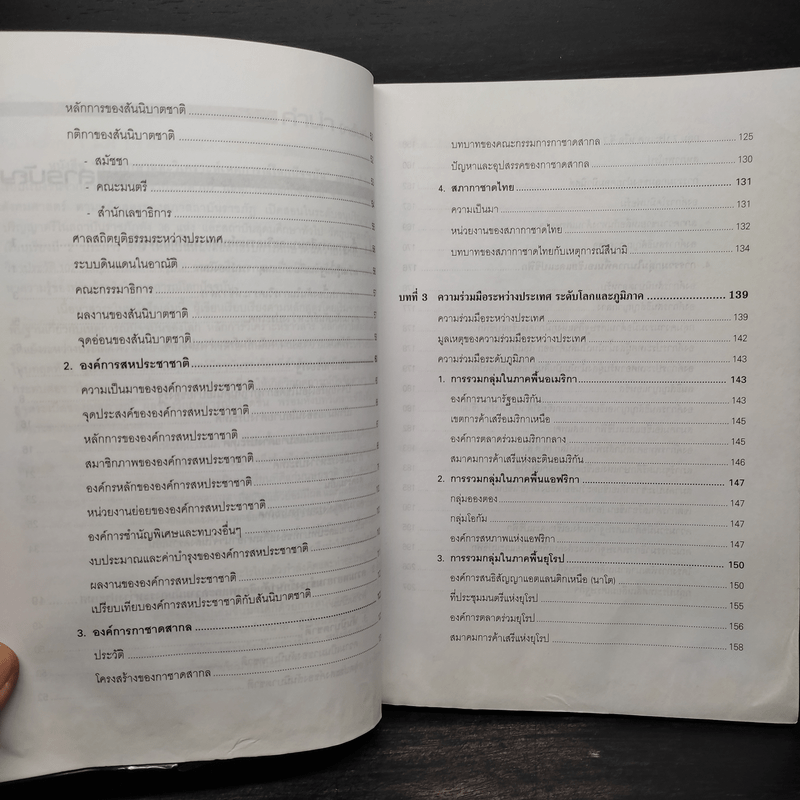 หลักการของสันนิบาตชาติ
กติกาของสันนิบาตชาติ
- สมัชชา
- คณะมนตรี
- สำนักเลขาธิการ
ศาลสถิตยุติธรรมระหว่างประเทศ
ระบบดินแดนในอาณัติ
คณะกรรมาธิการ
ผลงานของสันนิบาตชาติ
จุดอ่อนของสันนิบาตชาติ
2. องค์การสหประชาชาติ
ความเป็นมาขององค์การสหประชาชาติ
จุดประสงค์ขององค์การสหประชาชาติ
หลักการขององค์การสหประชาชาติ
สมาชิกภาพขององค์การสหประชาชาติ
องค์กรหลักขององค์การสหประชาชาติ
หน่วยงานย่อยขององค์การสหประชาชาติ
องค์การชำนัญพิเศษและทบวงอื่นๆ
งบประมาณและค่าบำรุงขององค์การสหประชาชาติ
ผลงานขององค์การสหประชาชาติ
เปรียบเทียบองค์การสหประชาชาติกับสันนิบาตชาติ
3. องค์การกาชาดสากล
ประวัติ
โครงสร้างของกาชาดสากล
บทบาทของคณะกรรมการกาชาดสากล 125
ปัญหาและอุปสรรคของกาชาดสากล 130
4. สภากาชาดไทย 131
ความเป็นมา 131
หน่วยงานของสภากาชาดไทย 132
บทบาทของสภากาชาดไทยกับเหตุการณ์สึนามิ 134
บทที่ 3 ความร่วมมือระหว่างประเทศ ระดับโลกและภูมิภาค 139
ความร่วมมือระหว่างประเทศ 139
มูลเหตุของความร่วมมือระหว่างประเทศ 142
ความร่วมมือระดับภูมิภาค 143
1. การรวมกลุ่มในภาคพื้นอเมริกา 143
องค์การนานารัฐอเมริกัน 143
เขตการค้าเสรีอเมริกาเหนือ 145
องค์การตลาดร่วมอเมริกากลาง 145
สมาคมการค้าเสรีแห่งละตินอเมริกัน 146
2. การรวมกลุ่มในภาคพื้นแอฟริกา 147
กลุ่มอองตอง 147
กลุ่มโอกัม 147
องค์การสหภาพแห่งแอฟริกา 147
3. การรวมกลุ่มในภาคพื้นยุโรป 150
องค์การสนธิสัญญาแอตแลนติกเหนือ (นาโต) 150
ที่ประชุมมนตรีแห่งยุโรป 155
องค์การตลาดร่วมยุโรป 156
สมาคมการค้าเสรีแห่งยุโรป 158